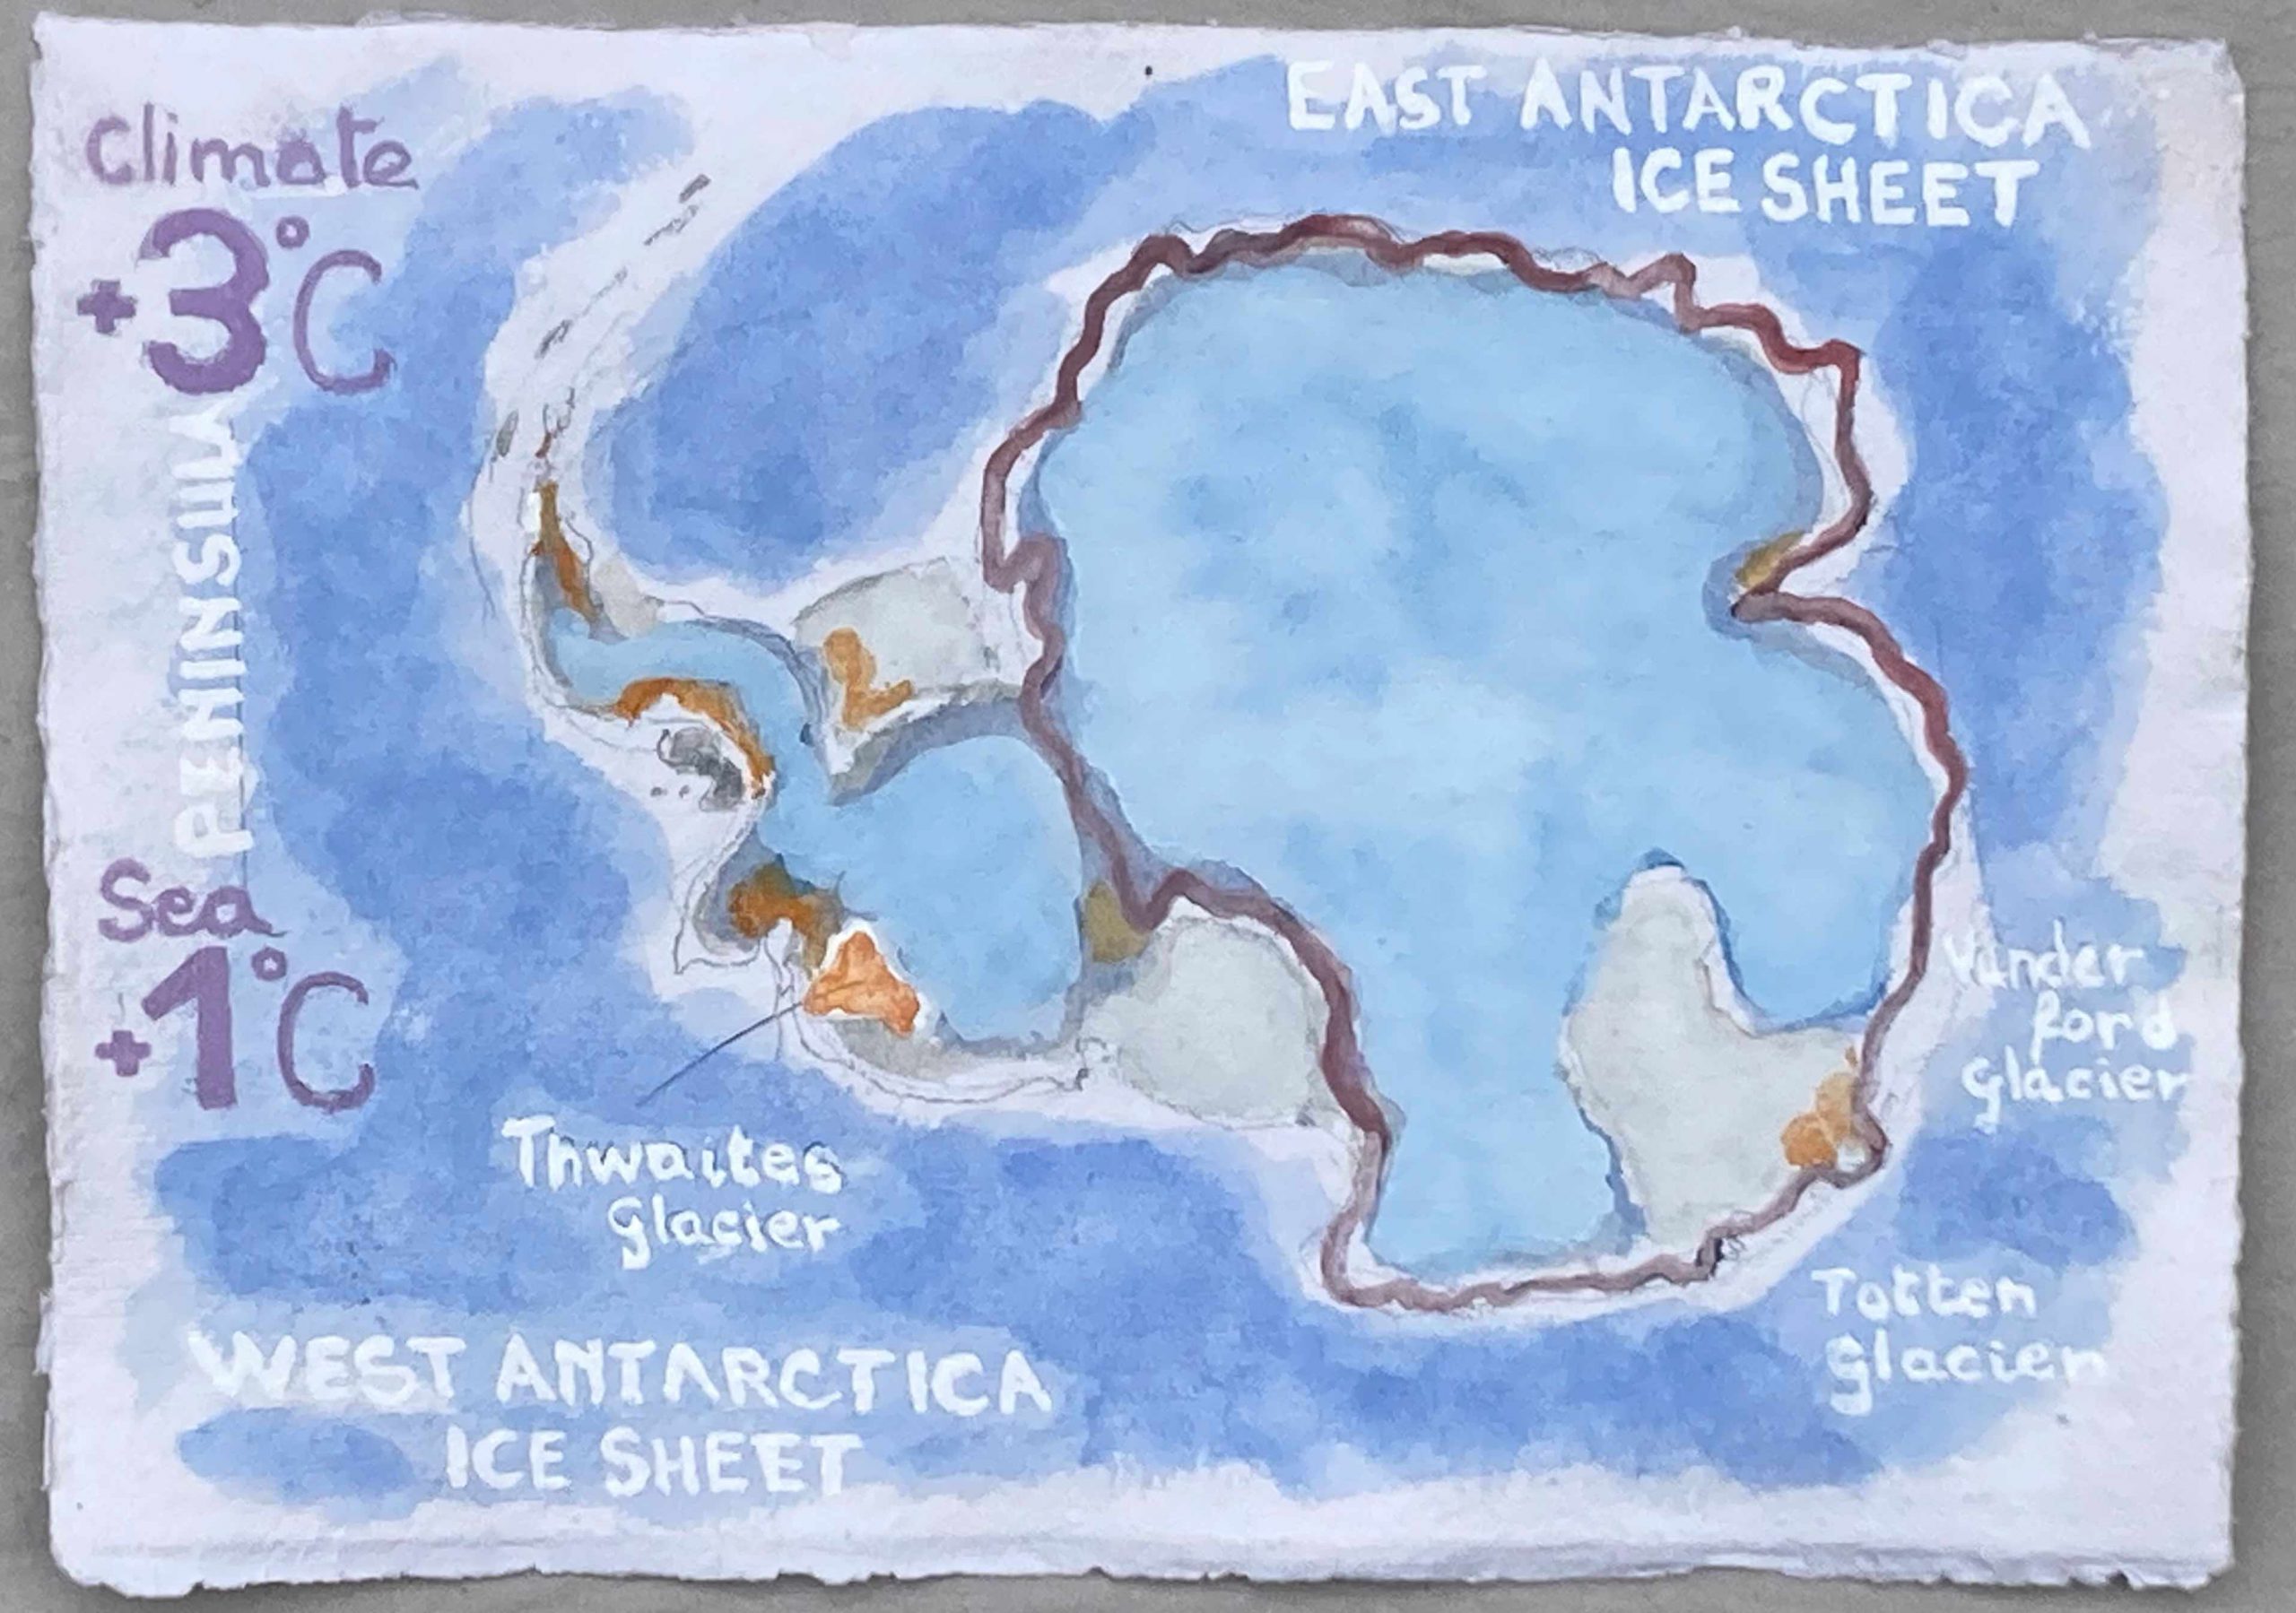 EAST ANTARCTICA
ICE SHEET
Climate
+3°C
PENINSULA
Sea
+1°C
Vander
ford
Glacier
Thwaites
Glacier
Totten
Glacier
WEST ANTARCTICA
ICE SHEET